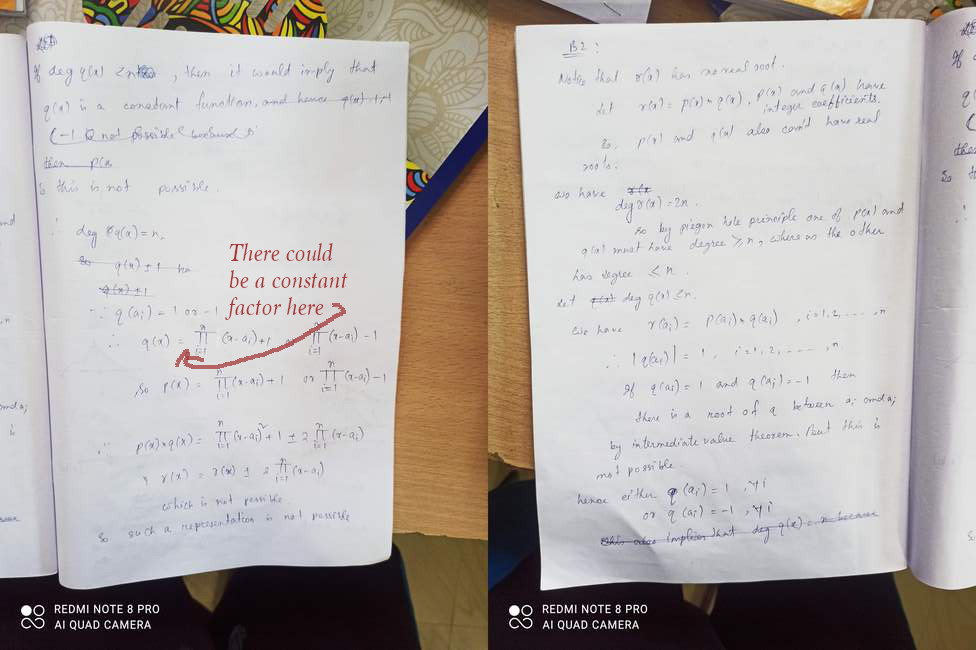 If deg q(x) < n, then it would imply that
q(x) is a constant function, and hence q(x)
(-1 is not possible because
then p(x
So this is not possible.
∴ deg q(x) = n.
So q(x) ± 1 ha
q(x) ± 1
∵ q(aᵢ) = 1 or -1
∴ q(x) = ∏ᵢ₌₁ⁿ (x-aᵢ)+1 or ∏ᵢ₌₁ⁿ (x-aᵢ) - 1
So p(x) = ∏ᵢ₌₁ⁿ (x-aᵢ) + 1 or ∏ᵢ₌₁ⁿ (x-aᵢ) - 1
∴ p(x)×q(x) = ∏ᵢ₌₁ⁿ (x-aᵢ)² + 1 ± 2 ∏ᵢ₌₁ⁿ (x-aᵢ)
r(x) = r(x) ± 2 ∏ᵢ₌₁ⁿ (x-aᵢ)
which is not possible.
So such a representation is not possible
There could
be a constant
factor here
REDMI NOTE 8 PRO
AI QUAD CAMERA
B2 :
Notice that r(x) has no real root.
Let r(x) = p(x) × q(x), p(x) and q(x) have
integer coefficients.
So, p(x) and q(x) also can't have real
roots.
We have r(x
deg r(x) = 2n.
So by pigeon hole principle one of p(x) and
q(x) must have degree ≥ n, where as the other
has degree ≤ n.
Let q(x) deg q(x) ≤ n.
We have r(aᵢ) = p(aᵢ) × q(aᵢ) , i = 1, 2, ..., n
∴ |q(aᵢ)| = 1, i = 1, 2, ..., n.
If q(aᵢ) = 1 and q(aⱼ) = -1 then
there is a root of q between aᵢ and aⱼ
by intermediate value theorem. But this is
not possible
hence either q(aᵢ) = 1 , ∀ i
or q(aᵢ) = -1, ∀ i
this also implies that deg q(x) = n because
REDMI NOTE 8 PRO
AI QUAD CAMERA